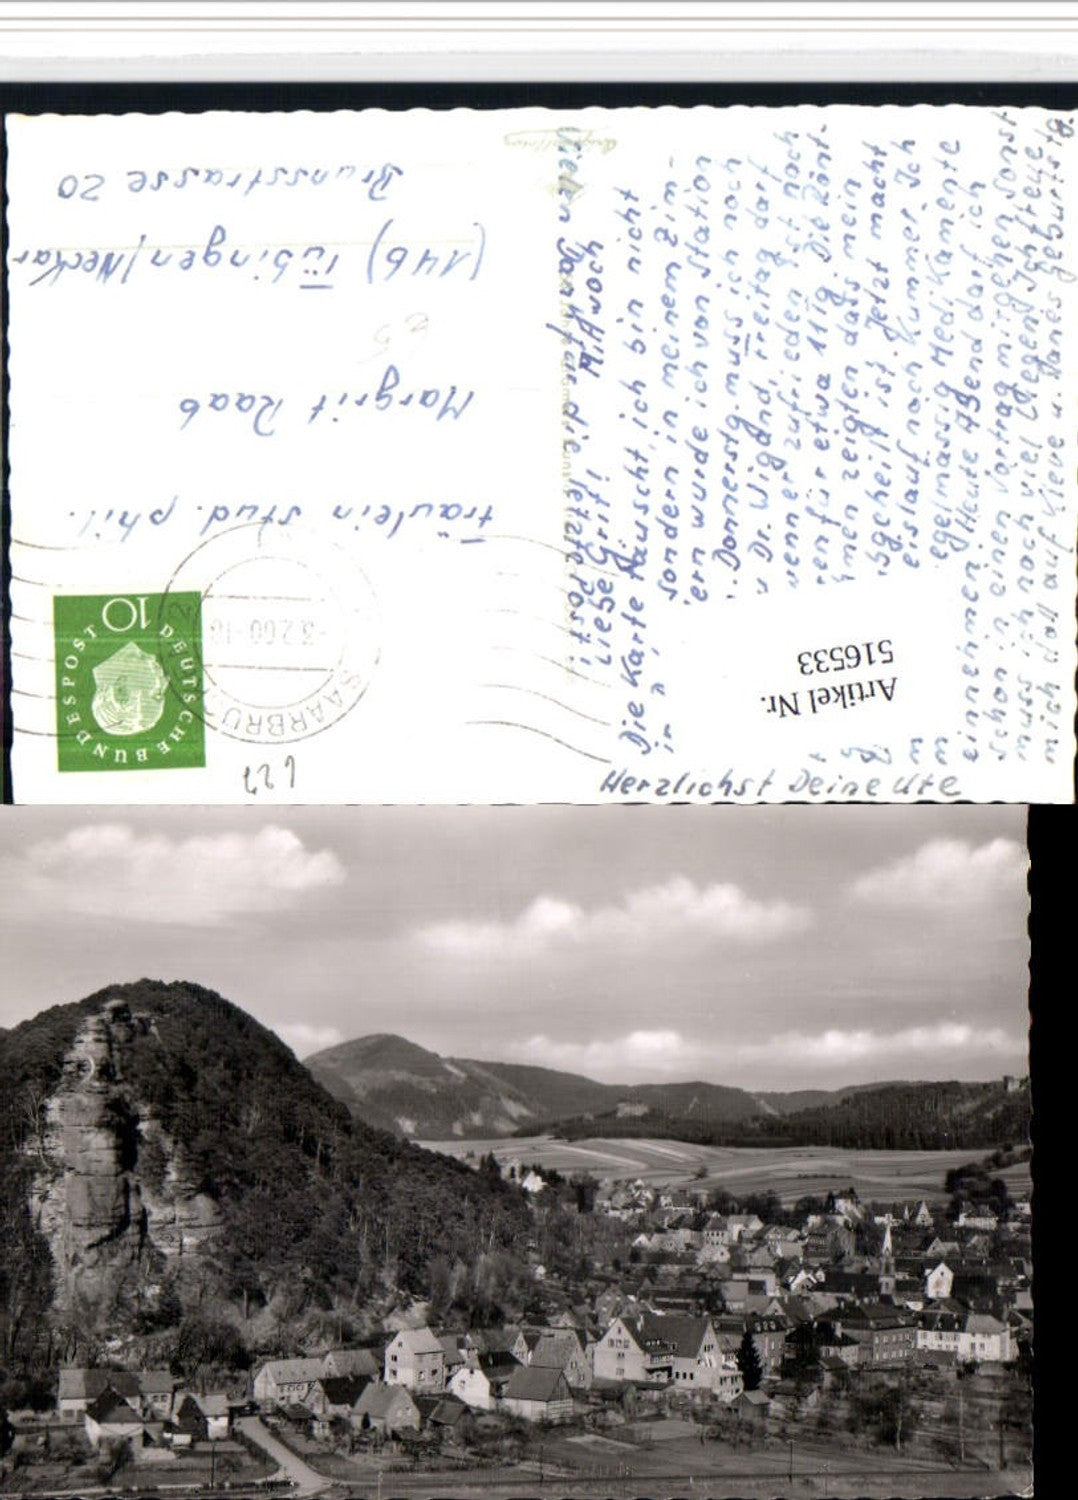 Vielen Dank für die letzte Post!
Mittwoch
Liebe Grit!
Die Karte täuscht, ich bin nicht
in
sondern in meinem Zim-
ern wurde ich von Station
Donnerstg. muss ich noch
Dr. Wigand, Freitag darf
wenn er zufrieden ist noch
ren für etwa 11 Tg. Die Rönt-
men zeigten dass mein
sgeheilt ist. Jetzt macht
eislauf noch Kummer. Ich
egelmässig Medikamente
einnehmen. Heute Abend darf ich
schon in einen Vortrag mitgehen, sonst
muss ich noch viel liegend. Ich freue
mich doll auf Kleve u. Hanes Geburtstg.
Herzlichst Deine Ute
Fräulein stud. phil.
Margrit Raab
(14b) Tübingen/Neckar
Brunsstrasse 20
DEUTSCHE BUNDESPOST
10
SAARBRÜ
-3.2.60-18
Artikel Nr.
516533